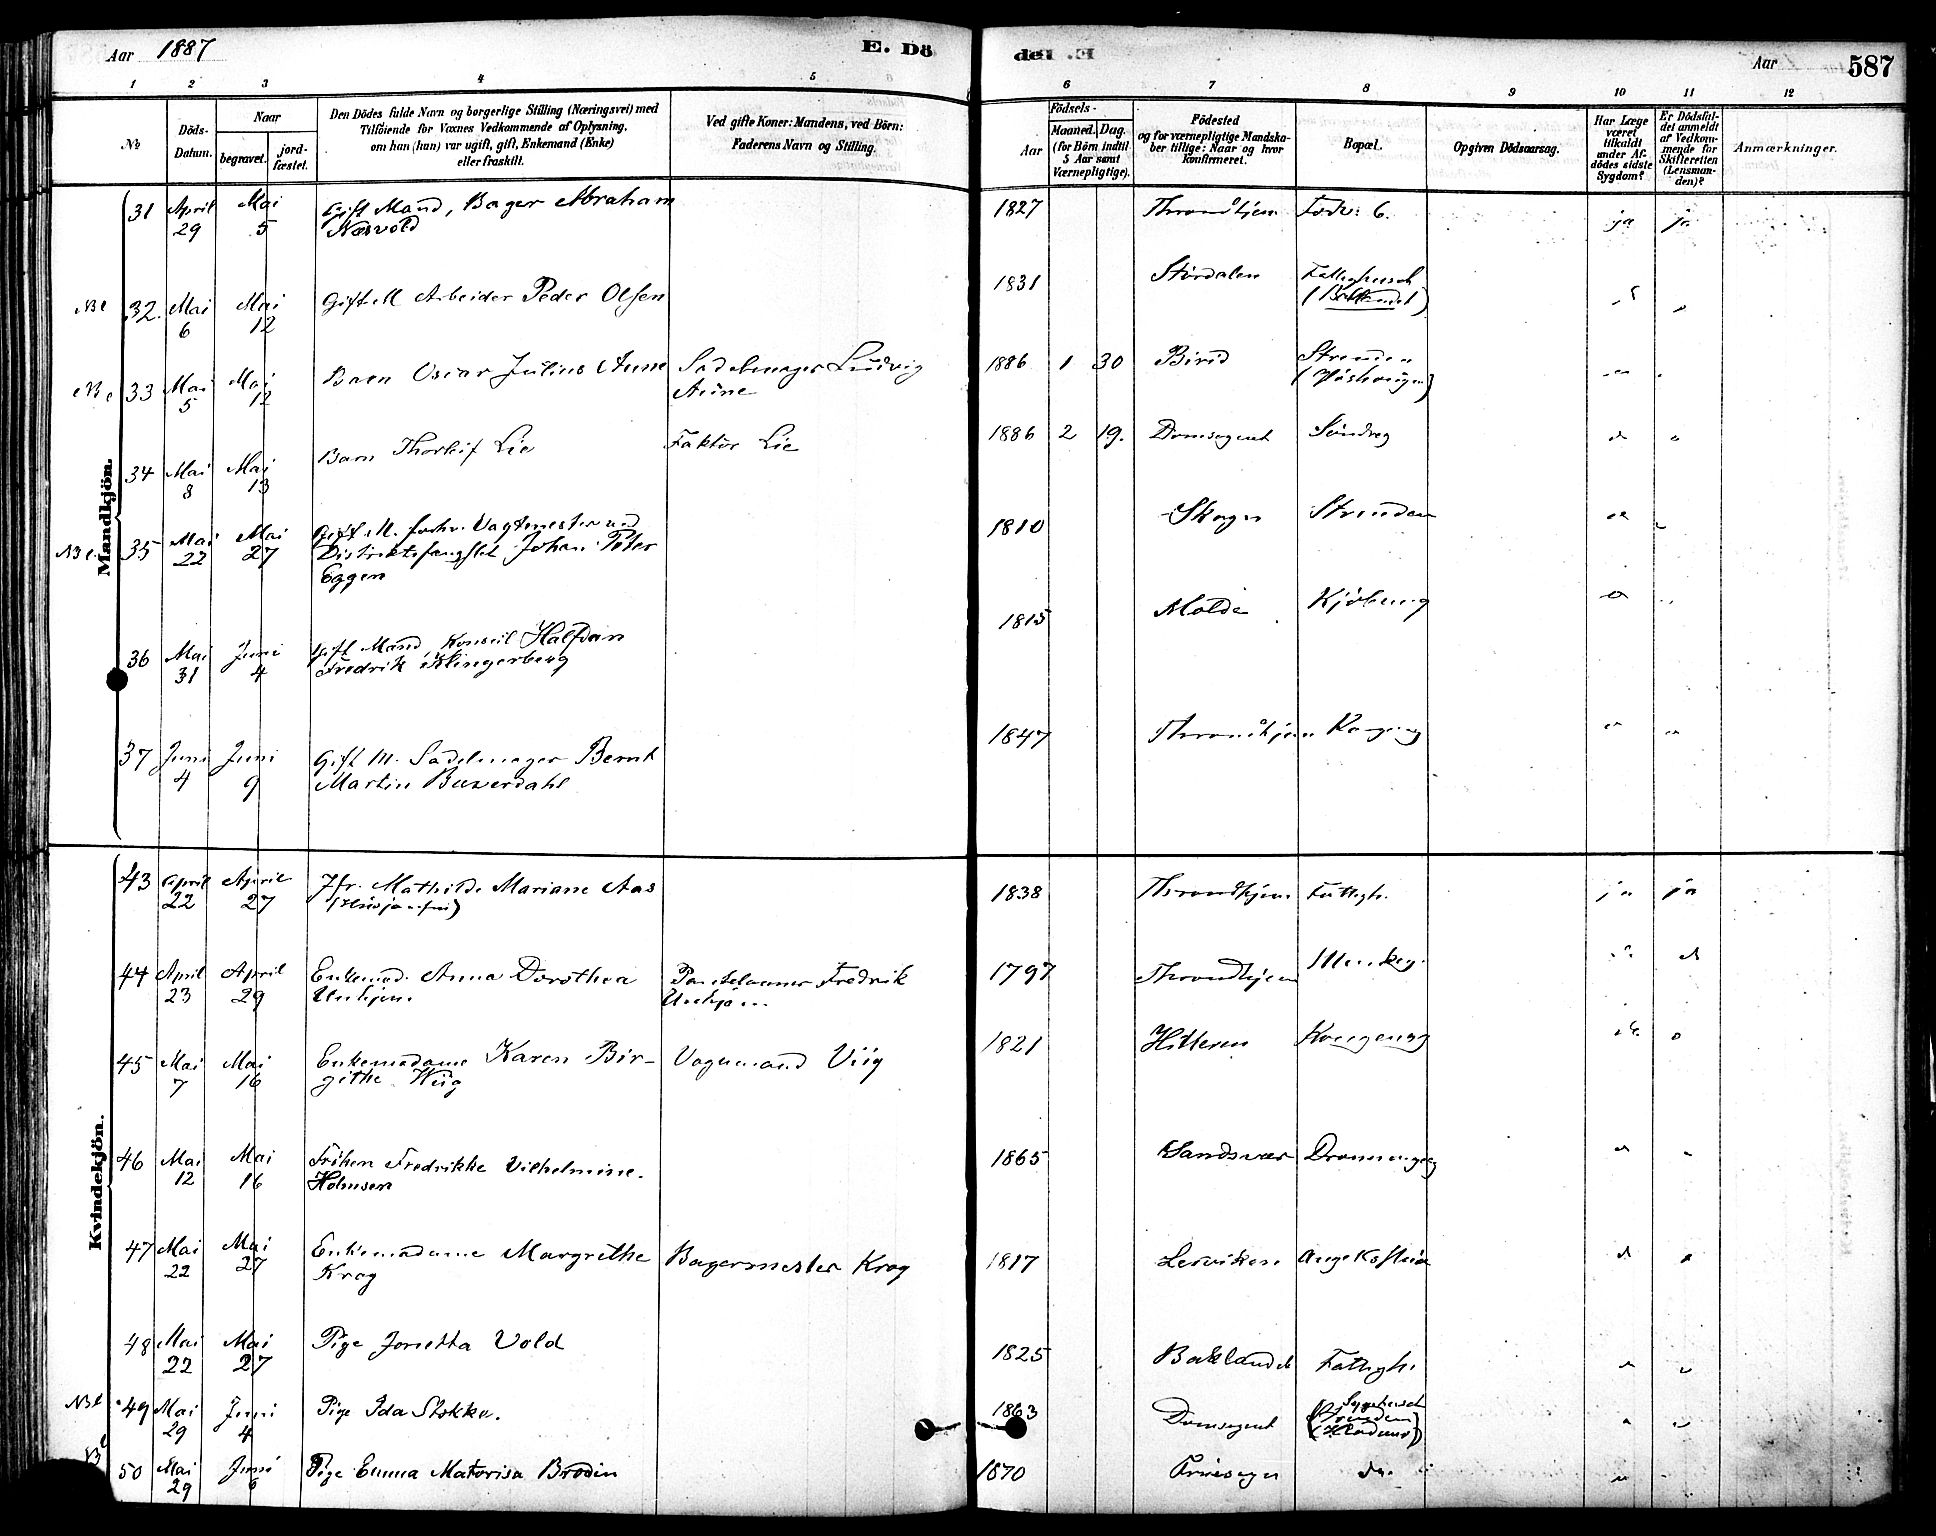 Aar 1887
E. Dö
del .E
Aar
587
1 2 3 4 5
6 7 8 9 10 11 12
No
Döds-
Datum.
Naar
begravet.
jord-
fæstet.
Den Dödes fulde Navn og borgerlige Stilling (Næringsvei) med
Tilföiende for Voxnes Vedkommende af Oplysning,
om han (hun) var ugift, gift, Enkemand (Enke)
eller fraskilt.
Ved gifte Koner: Mandens, ved Börn:
Faderens Navn og Stilling.
Födsels-
Aar
Maaned. Dag.
(for Börn indtil
5 Aar samt
Værnepligtige).
Födested
og for værnepligtige Mandska-
ber tillige: Naar og hvor
konfirmeret.
Bopæl.
Opgiven Dödsaarsag.
Har Læge
været
tilkaldt
under Af-
dödes sidste
Sygdom?
Er Dödsfal-
det anmeldt
af Vedkom-
mende for
Skifteretten
(Lensman-
den)?
Anmærkninger.
Mandkjön.
31 April 29 Mai 5 Gift Mand, Bager Abraham
Næsvold
1827 Throndhjem 6. ja ja
32. Mai 6 Mai 12 Gift M Arbeider Peder Olsen
1831 Stördalen
33 Mai 5 Mai 12 Barn Oscar Julius Aune Sadelmager Ludvig
Aune
1886 1 30 Birid
34 Mai 8 Mai 13 Barn Thorleif Lie Faktor Lie
1886 2 19. Domsognet Söndreg
35 Mai 22 Mai 27 Gift M. forhv. Vagtmester ved
Johan Peter
Eggen
1810 Skogn Strinden
36 Mai 31 Juni 4 Gift Mand, Konsul Halfdan
Fredrik Klingenberg
1815 Molde Kjöbmg
37 Juni 4 Juni 9 Gift M. Sadelmager Bernt
Martin Buverdahl
1847 Throndhjem Kongensg
Kvindekjön.
43 April 22 April 27 Jfr. Mathilde Mariane Aas
1838 Throndhjem Fattigh. ja ja
44 April 23 April 29 Enkemad. Anna Dorothea
Unhjem
Fredrik
Unhjem
1797 Throndhjem Munkeg.
45 Mai 7 Mai 16 Enkemadame Karen Bir-
githe Wiig
Vognmand Viig
1821 Hitteren Kongensg
46 Mai 12 Mai 16 Fröken Fredrikke Vilhelmine
Holmsen
1865 Sandsvær Dronningsg
47 Mai 22 Mai 27 Enkemadame Margrethe
Krog
Bagermester Krog
1817 Lerviken
48 Mai 22 Mai 27 Pige Jonetta Vold
1825 Baklandet Fattigh.
49 Mai 29 Juni 4 Pige Ida Stokke.
1863 Domsognet
50 Mai 29 Juni 6 Pige Emma Matorisa Brodin
1870 do.